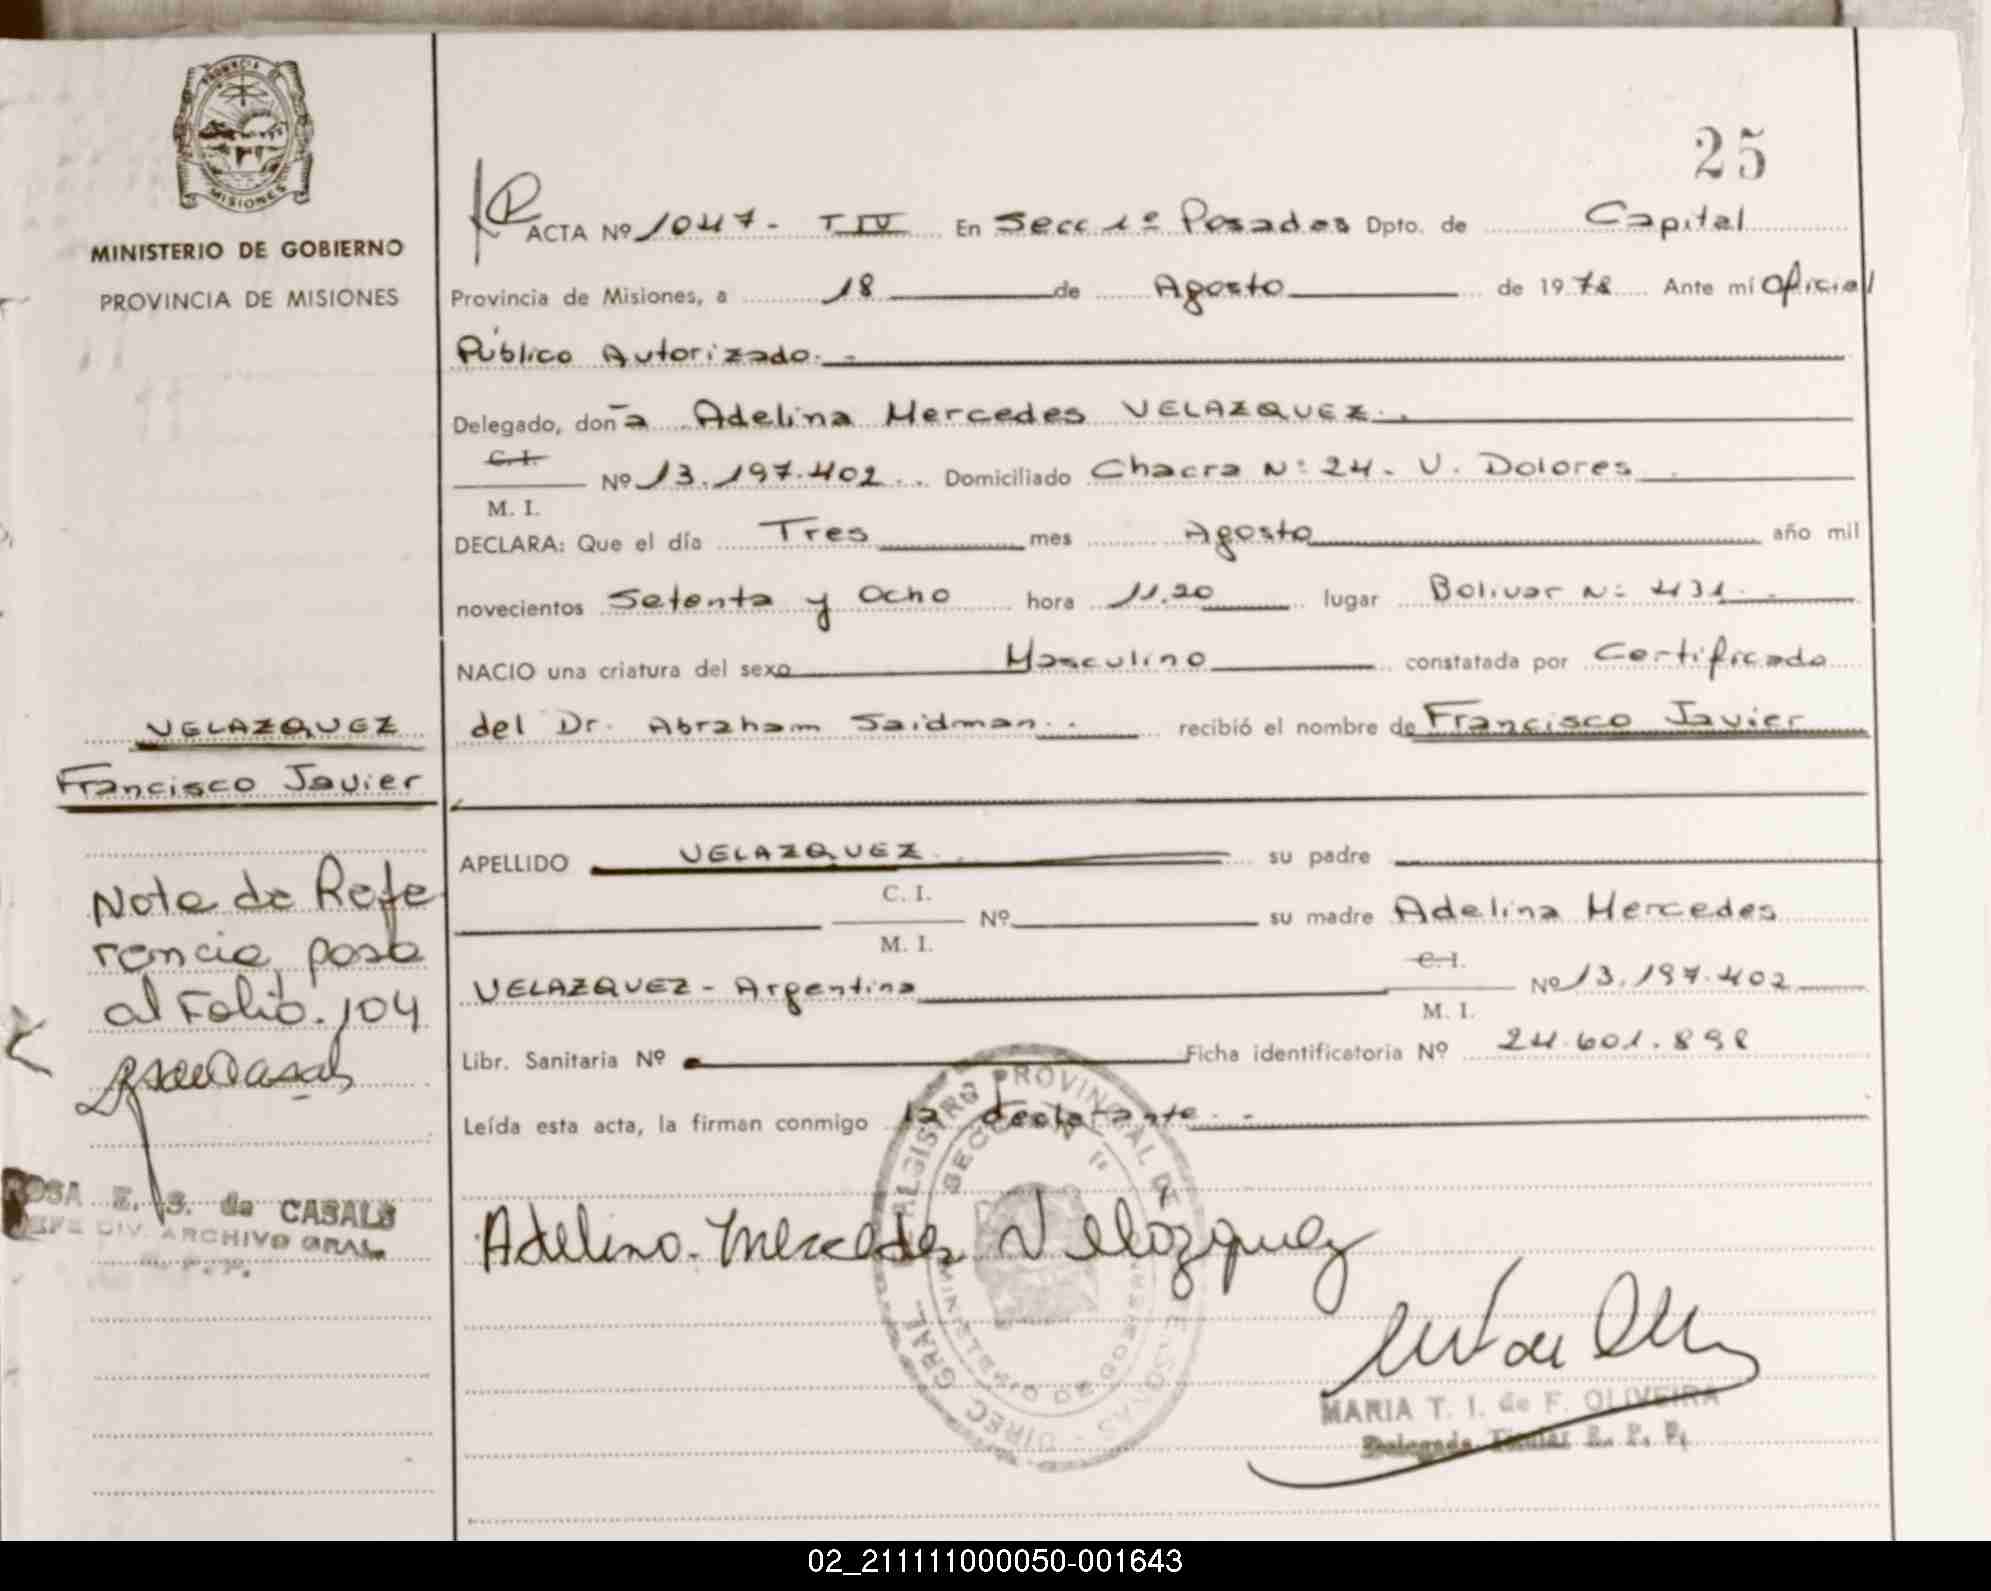 PROVINCIA DE
MISIONES
MINISTERIO DE GOBIERNO
PROVINCIA DE MISIONES
25
ACTA Nº 1047- TIV En Secc 1º Posadas Dpto. de Capital
Provincia de Misiones, a 18 de Agosto de 1978 Ante mí Oficial
Público Autorizado.-
Delegado, doña Adelina Mercedes VELAZQUEZ.
C. I.
Nº 13.197.402 Domiciliado Chacra Nº 24. V. Dolores
M. I.
DECLARA: Que el día Tres mes Agosto año mil
novecientos Setenta y Ocho hora 11.20 lugar Bolivar Nº 431
NACIO una criatura del sexo Masculino constatada por Certificado
del Dr. Abraham Saidman recibió el nombre de Francisco Javier
VELAZQUEZ
Francisco Javier
APELLIDO VELAZQUEZ su padre
C. I.
Nº su madre Adelina Mercedes
M. I.
C. I.
VELAZQUEZ - Argentina Nº 13.197.402
M. I.
Libr. Sanitaria Nº Ficha identificatoria Nº 24.601.898
Leída esta acta, la firman conmigo la declarante.-
Nota de Refe
rencia, pasa
al Folio. 104
ROSA E. S. de CASALS
JEFE DIV. ARCHIVO GRAL.
R. P. P.
Adelina Mercedes Velázquez
DIREC. GRAL. REGISTRO PROVINCIAL DE PERSONAS
SECCION 1ª
MINISTERIO DE GOBIERNO
MARIA T. I. de F. OLIVEIRA
Delegada Titular R. P. P.
02_211111000050-001643